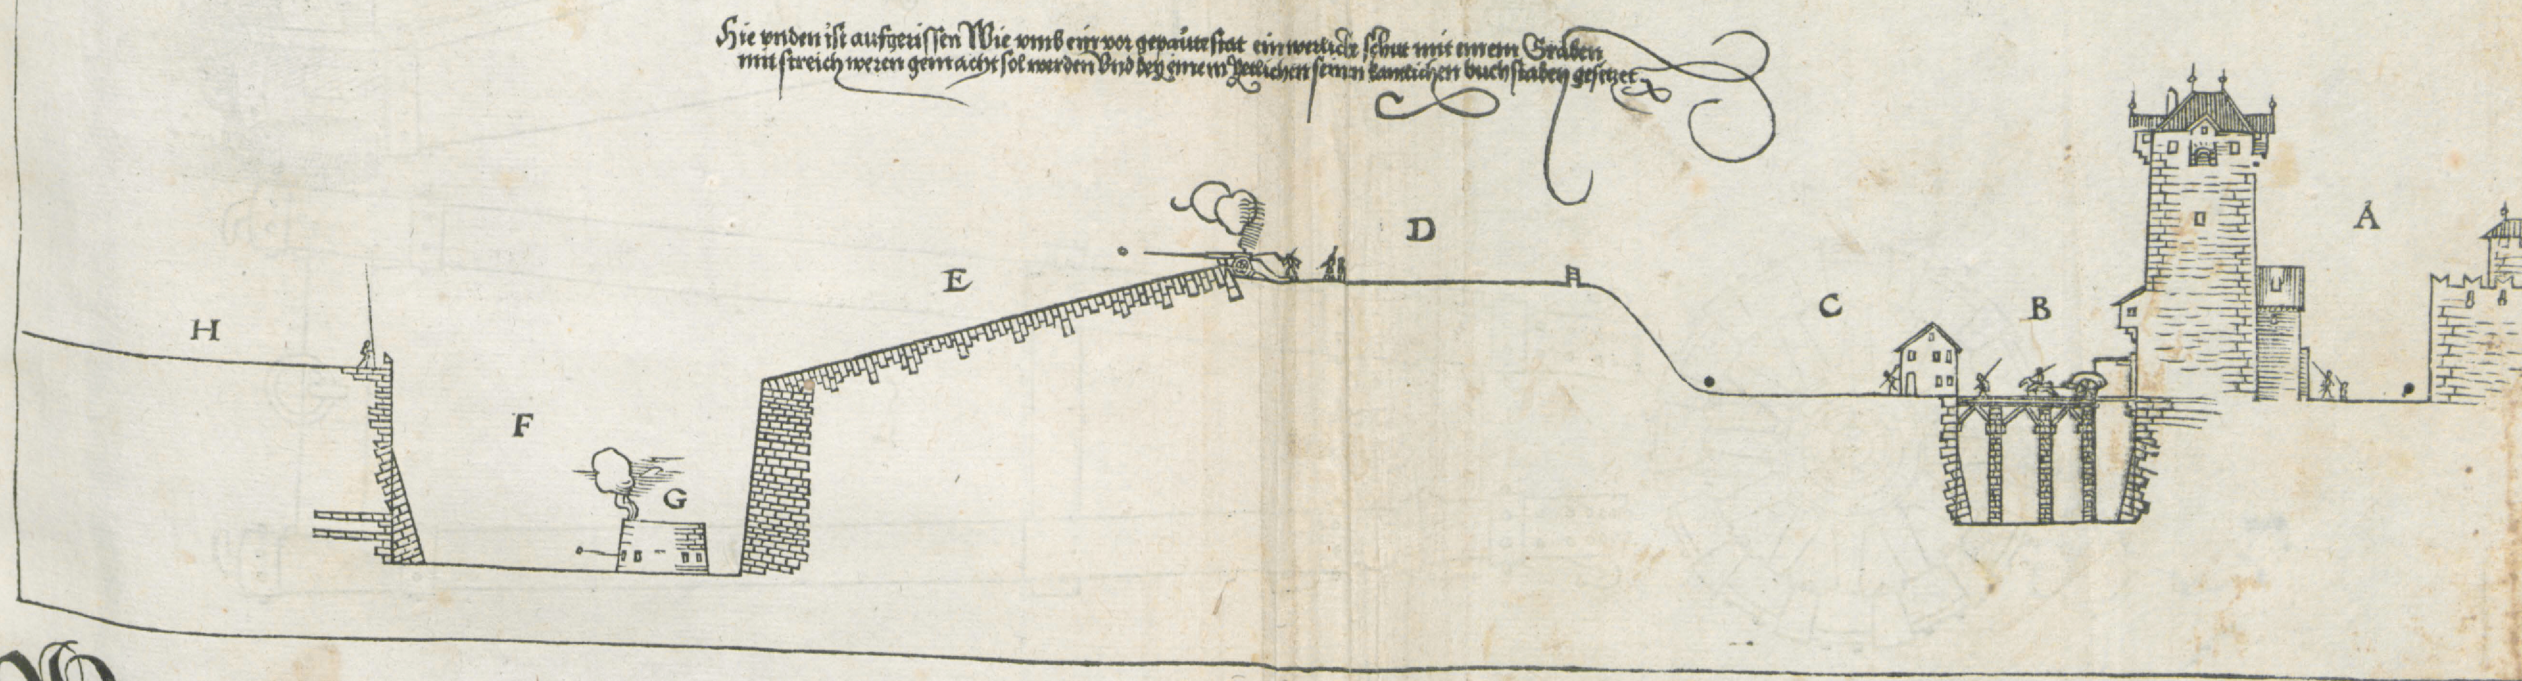 Hie vnden ist aufgerissen Wie vmb ein vor gepaute stat ein werliche schut mit einem Graben
mit streichweren gemacht sol werden Vnd bey einem yetlichen seinen kentlichen buchstaben gesetzet
A
D
E
B
C
H
F
G